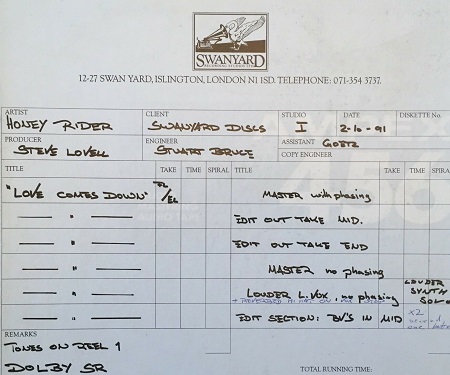 SWANYARD
RECORDING STUDIOS LTD
12-27 SWAN YARD, ISLINGTON, LONDON N1 1SD. TELEPHONE: 071-354 3737.
ARTIST CLIENT STUDIO DATE DISKETTE No.
HONEY RIDER SWANYARD DISCS I 2-10-91
PRODUCER ENGINEER ASSISTANT GOETZ
STEVE LOVELL STUART BRUCE COPY ENGINEER
TAKE TIME SPIRAL TAKE TIME SPIRAL
"LOVE COMES DOWN" MASTER with phasing
— " — EDIT OUT TAKE MID.
— " — EDIT OUT TAKE END
— " — MASTER no phasing
— " — LOUDER L.VOX, no phasing LOUDER SYNTH SOLO
— " — EDIT SECTION: BV'S IN MID X2
REMARKS
TONES ON REEL 1
DOLBY SR
TOTAL RUNNING TIME: